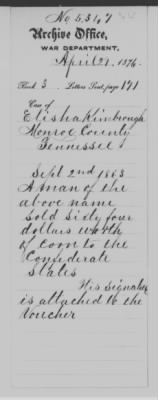 No 5347
Archive Office,
WAR DEPARTMENT,
April 21, 1876.
Book 3 Letters Sent, page 171
Case of
Elisha Kimbrough
Monroe County
Tennessee
Sept 2nd 1863
A man of the
above name
Sold Sixty four
dollars worth
of Corn to the
Confederate
States
His Signature
is attached to the
Voucher